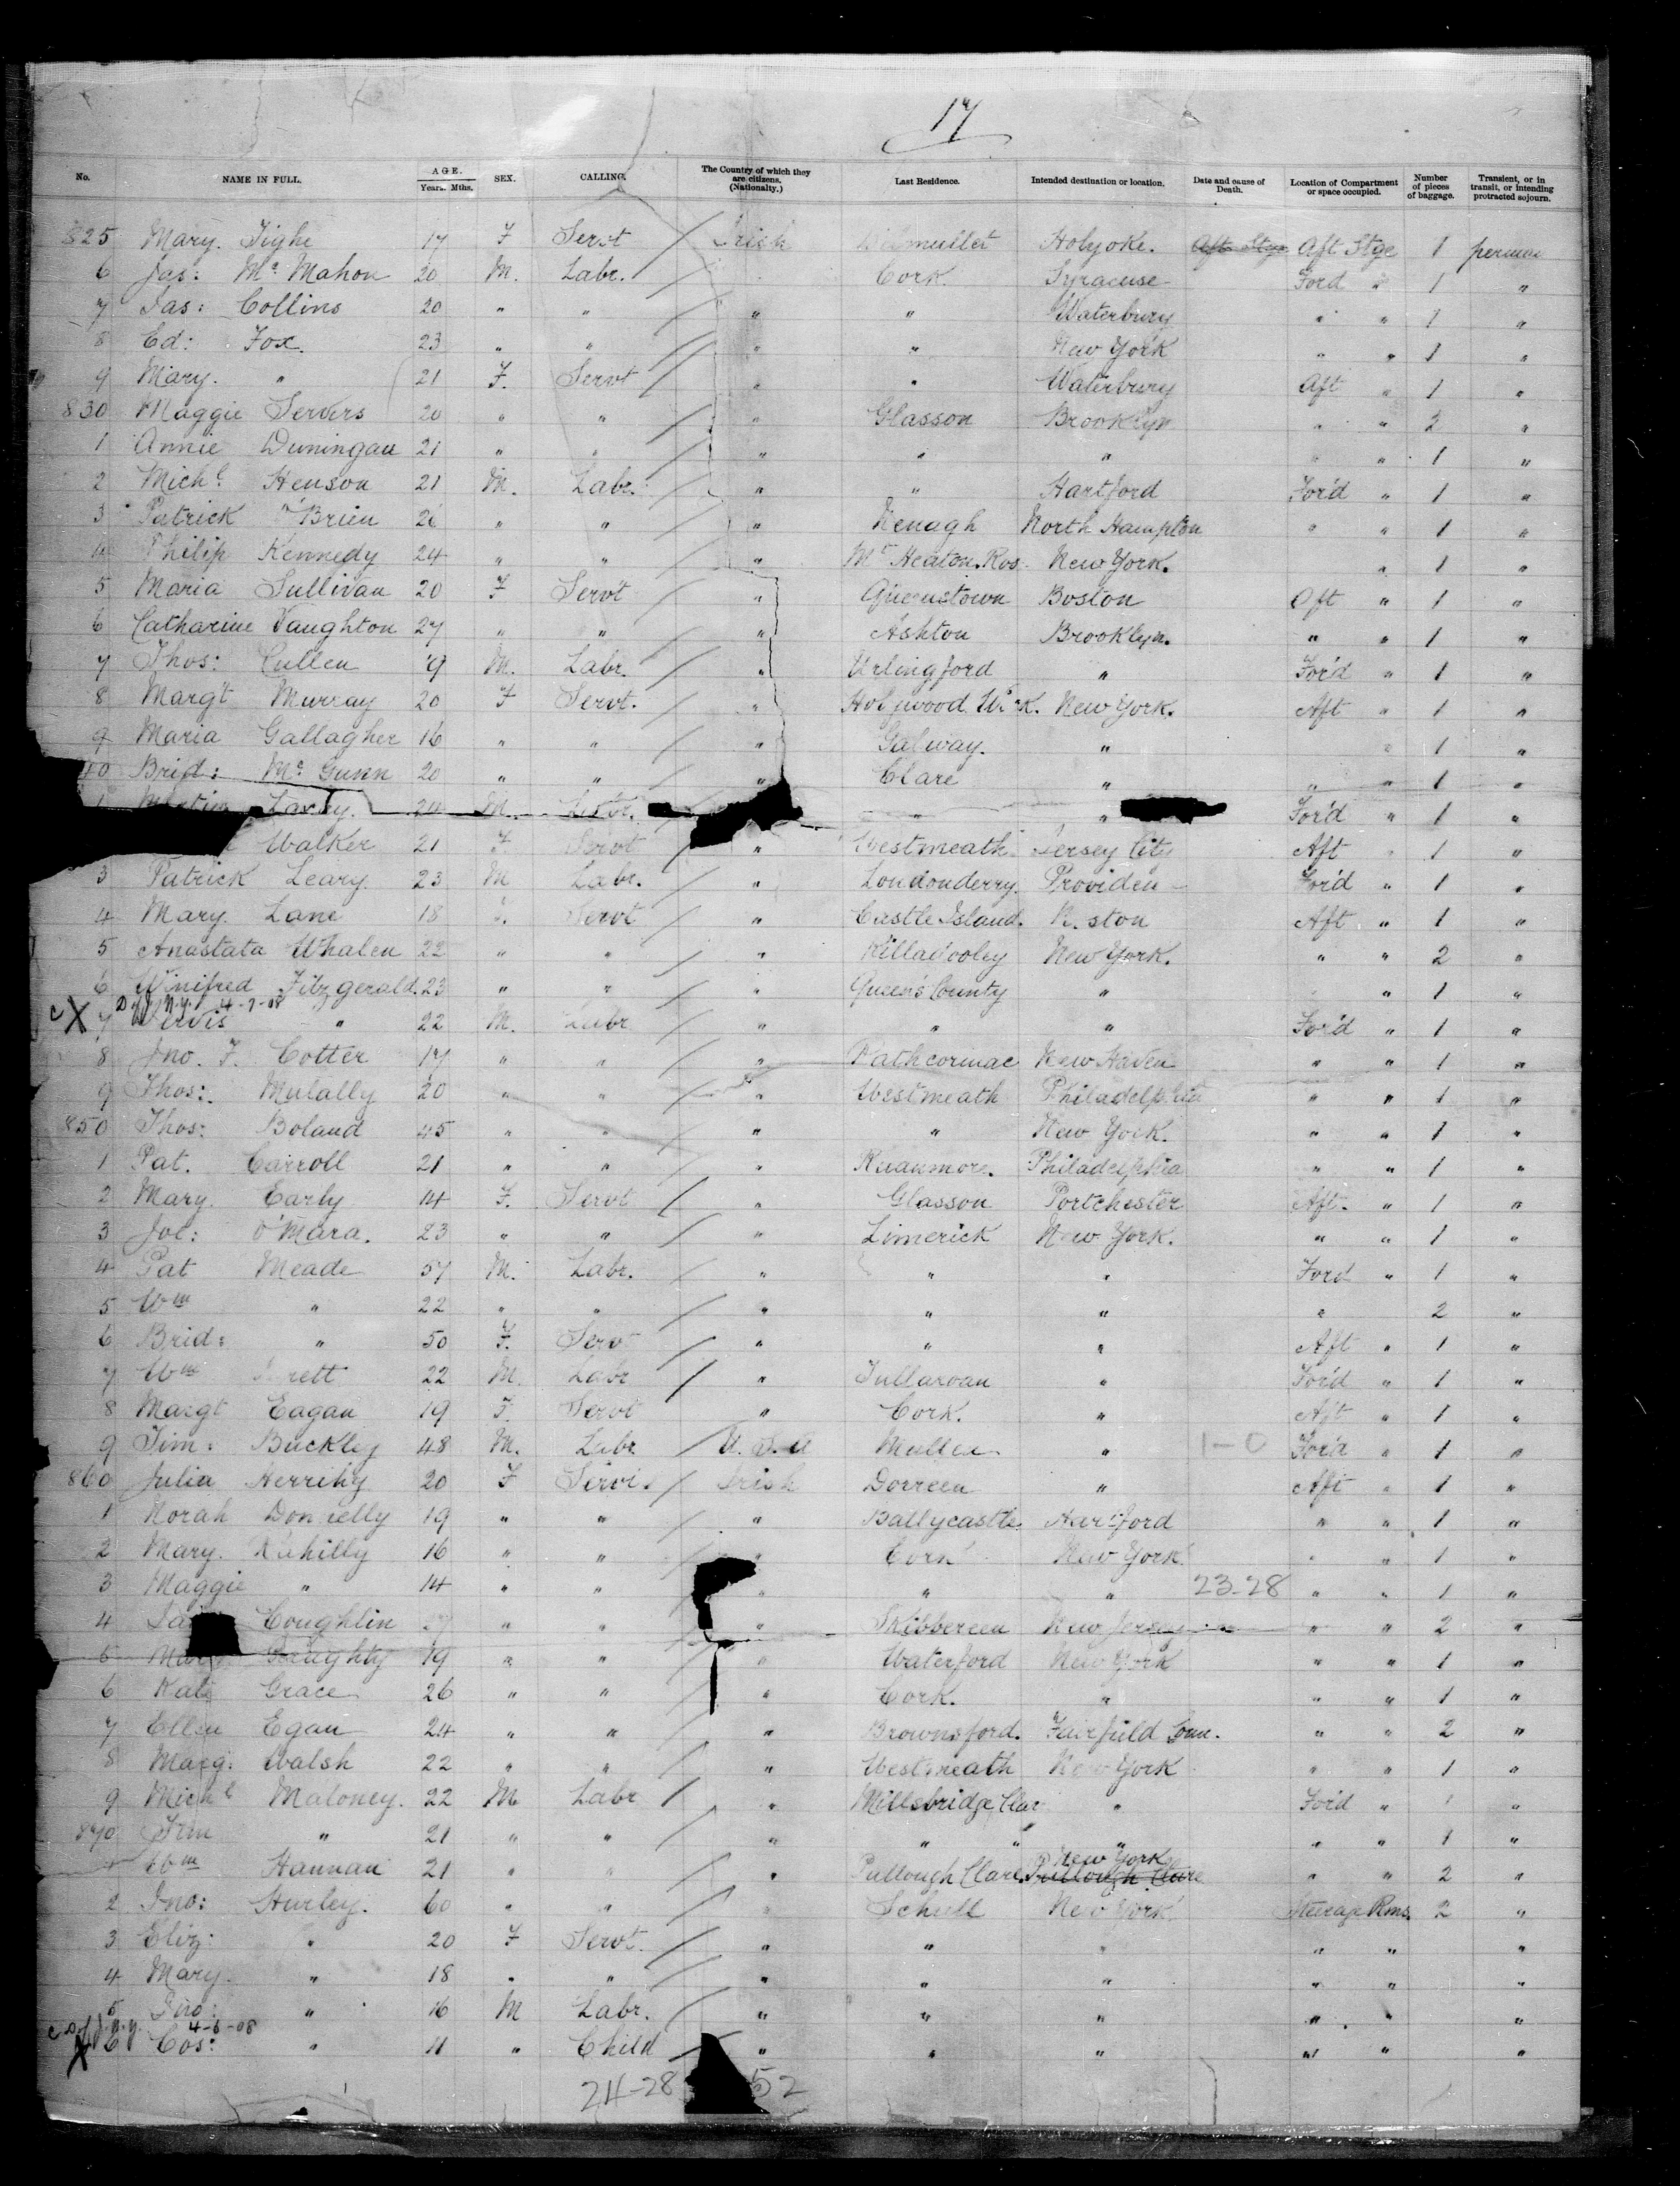 17
No. NAME IN FULL. AGE. Years. Mths. SEX. CALLING. The Country of which they are citizens. (Nationality.) Last Residence. Intended destination or location. Date and cause of Death. Location of Compartment or space occupied. Number of pieces of baggage. Transient, or in transit, or intending protracted sojourn.
825 Mary. Tighe 17 F Servt Irish Holyoke. Aft Stge Aft Stge 1
6 Jas: Mc Mahon 20 M. Labr. Cork. Syracuse Ford " 1 "
7 Jas: Collins 20 " " " " Waterbury " " 1 "
8 Ed: Fox. 23 " " " " New York " " 1 "
9 Mary. " 21 F. Servt " " Waterbury Aft " 1 "
830 Maggie Servers 20 " " " Glasson Brooklyn " " 2 "
1 Annie Duningan 21 " " " " " " " 1 "
2 Michl Henson 21 M. Labr. " " Hartford For'd " 1 "
3 Patrick O'Brien 26 " " " Kenagh North Hampton " " 1 "
4 Philip Kennedy 24 " " " Mt Heaton. Ros New York. " 1 "
5 Maria Sullivan 20 F Servt " Queenstown Boston Aft " 1 "
6 Catharine Naughton 27 " " " Ashton Brooklyn. " " 1 "
7 Thos: Cullen 19 M. Labr. " Urlingford " For'd " 1 "
8 Margt Murray 20 F Servt. " New York. Aft " 1 "
9 Maria Gallagher 16 " " " Galway. " " 1 "
40 Brid: Mc Gunn 20 " " " Clare " " " 1 "
1 Martin 24 M. Labr. " " For'd " 1 "
Walker 21 F. Servt " Westmeath Jersey City Aft " 1 "
3 Patrick Leary. 23 M Labr. " Londonderry. Providen For'd " 1 "
4 Mary. Lane 18 Servt " Castle Island. Aft " 1 "
5 Anastata Whalen 22 " " " Killadooley New York. " " 2 "
6 Winifred Fitzgerald. 23 " " " Queen's County " " 1 "
4-7-08
7 " 22 M. Labr " " " For'd " 1 "
8 Jno. F. Cotter 17 " " " Rathcormac New Haven " " 1 "
9 Thos: Mulally 20 " " " Westmeath Philadelphia " " 1 "
850 Thos: Boland 45 " " " " New York. " " 1 "
1 Pat. Carroll 21 " " " Philadelphia " " 1 "
2 Mary. Early 14 F. Servt " Glasson Portchester Aft. " 1 "
3 Joe: O'Mara. 23 " " " Limerick New York. " " 1 "
4 Pat Meade 57 M. Labr. " " " Ford " 1 "
5 Wm " 22 " " " " " " 2 "
6 Brid: " 50 F. Serv " " " Aft " 1 "
7 Wm 22 M. Labr " Tullaroan " For'd " 1 "
8 Margt Eagan 19 F. Servt " Cork. " Aft " 1 "
9 Tim: Buckley 48 M. Labr. U.S.A " 1-0 For'd " 1 "
860 Julia Herrihy 20 F Servt. Irish Dorreen " Aft " 1 "
1 Norah Donnelly 19 " " " Ballycastle. Hartford " " 1 "
2 Mary. 16 " " " Cork New York. " " 1 "
3 Maggie " 14 " " " " " 23-28 " " 1 "
4 Coughlin " " " Skibbereen New Jersey " " 2 "
5 Mary 19 " " " Waterford New York " " 1 "
6 Kate Grace 26 " " " Cork. " " " 1 "
7 Ellen Egan 24 " " " Brownsford. Fairfield Conn. " " 2 "
8 Marg: Walsh 22 " " " Westmeath New York " " 1 "
9 Michl Maloney. 22 M Labr " Millsbridge, Clar " For'd " 1 "
870 " 21 " " " " " " " " 1 "
New York
Wm Hannan 21 " " " Pullough Clare. Pullough Clare " " 2 "
2 Jno: Hurley. 60 " " " Schull New York Steerage Rms. 2 "
3 Eliz: " 20 F Servt. " " " " " "
4 Mary. " 18 " " " " " " " "
5 Jno: " 16 M Labr. " " " " " "
4-6-08
6 Cos: " 11 " Child " " " " " "
24-28 52